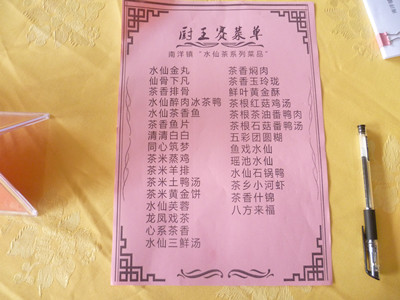 厨王赛菜单
南洋镇“水仙茶系列菜品”
水仙金丸
仙骨下凡
茶香排骨
水仙醉肉冰茶鸭
水仙茶香鱼
茶香鱼片
清清白白
同心筑梦
茶米蒸鸡
茶米羊排
茶米土鸭汤
茶米黄金饼
水仙芙蓉
龙凤戏茶
心系茶香
水仙三鲜汤
茶香焖肉
茶香玉玲珑
鲜叶黄金酥
茶根红菇鸡汤
茶根茶油番鸭肉
茶根石菇番鸭汤
五彩团圆糊
鱼戏水仙
瑶池水仙
水仙石锅鸭
茶乡小河虾
茶香什锦
八方来福